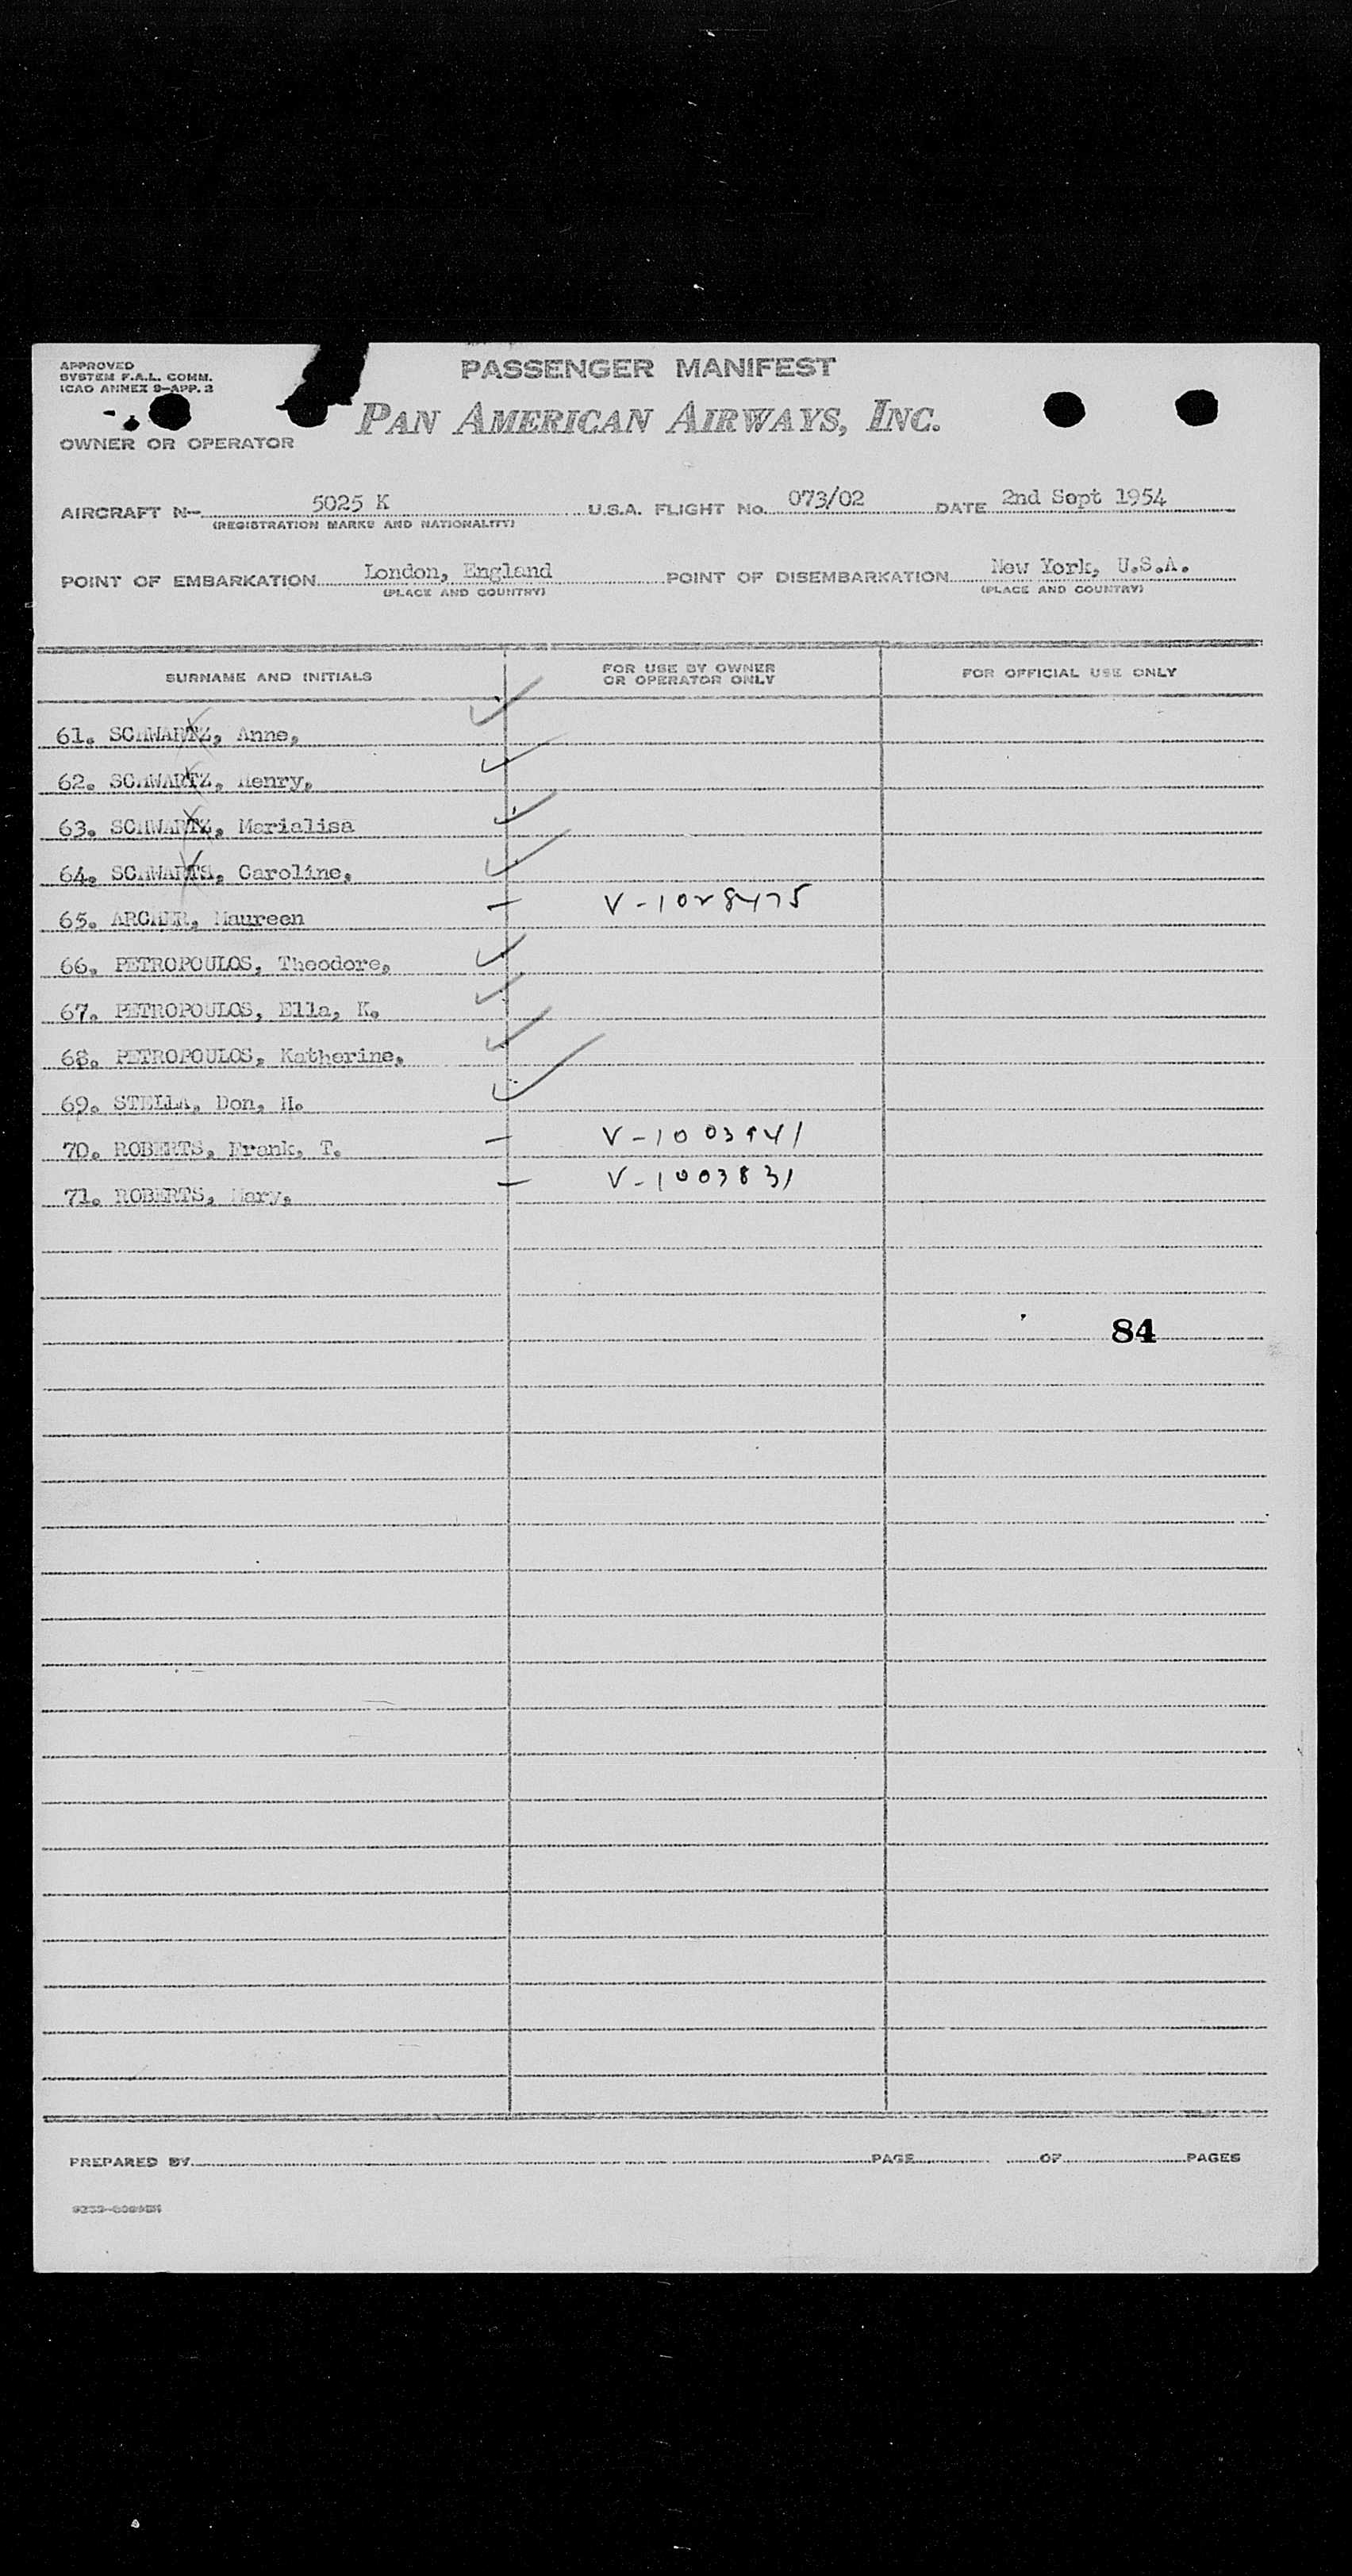 APPROVED
SYSTEM F.A.L. COMM.
ICAO ANNEX 9-APP. 3
PASSENGER MANIFEST
PAN AMERICAN AIRWAYS, INC.
OWNER OR OPERATOR
AIRCRAFT N- 5025 K U.S.A. FLIGHT No. 073/02 DATE 2nd Sept 1954
(REGISTRATION MARKS AND NATIONALITY)
POINT OF EMBARKATION London, England POINT OF DISEMBARKATION New York, U.S.A.
(PLACE AND COUNTRY) (PLACE AND COUNTRY)
SURNAME AND INITIALS FOR USE BY OWNER OR OPERATOR ONLY FOR OFFICIAL USE ONLY
61. SCHWARTZ, Anne,
62. SCHWARTZ, Henry,
63. SCHWARTZ, Marialisa
64. SCHWARTS, Caroline,
65. ARCHER, Maureen
66. PETROPOULOS, Theodore,
67. PETROPOULOS, Ella, K.
68. PETROPOULOS, Katherine,
69. STELLA, Don, H.
70. ROBERTS, Frank, T.
71. ROBERTS, Mary, V-1003831
84
PREPARED BY PAGE OF PAGES